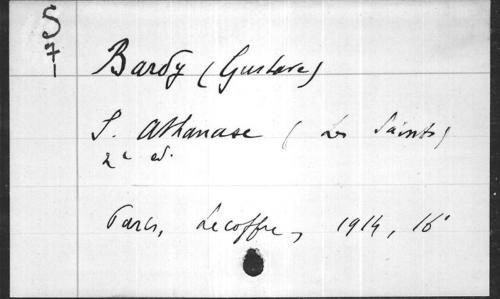 S
7-
Bardy (Gustave)
S. Athanase (Les Saints)
2e ed.
Paris, Lecoffre, 1914, 16°